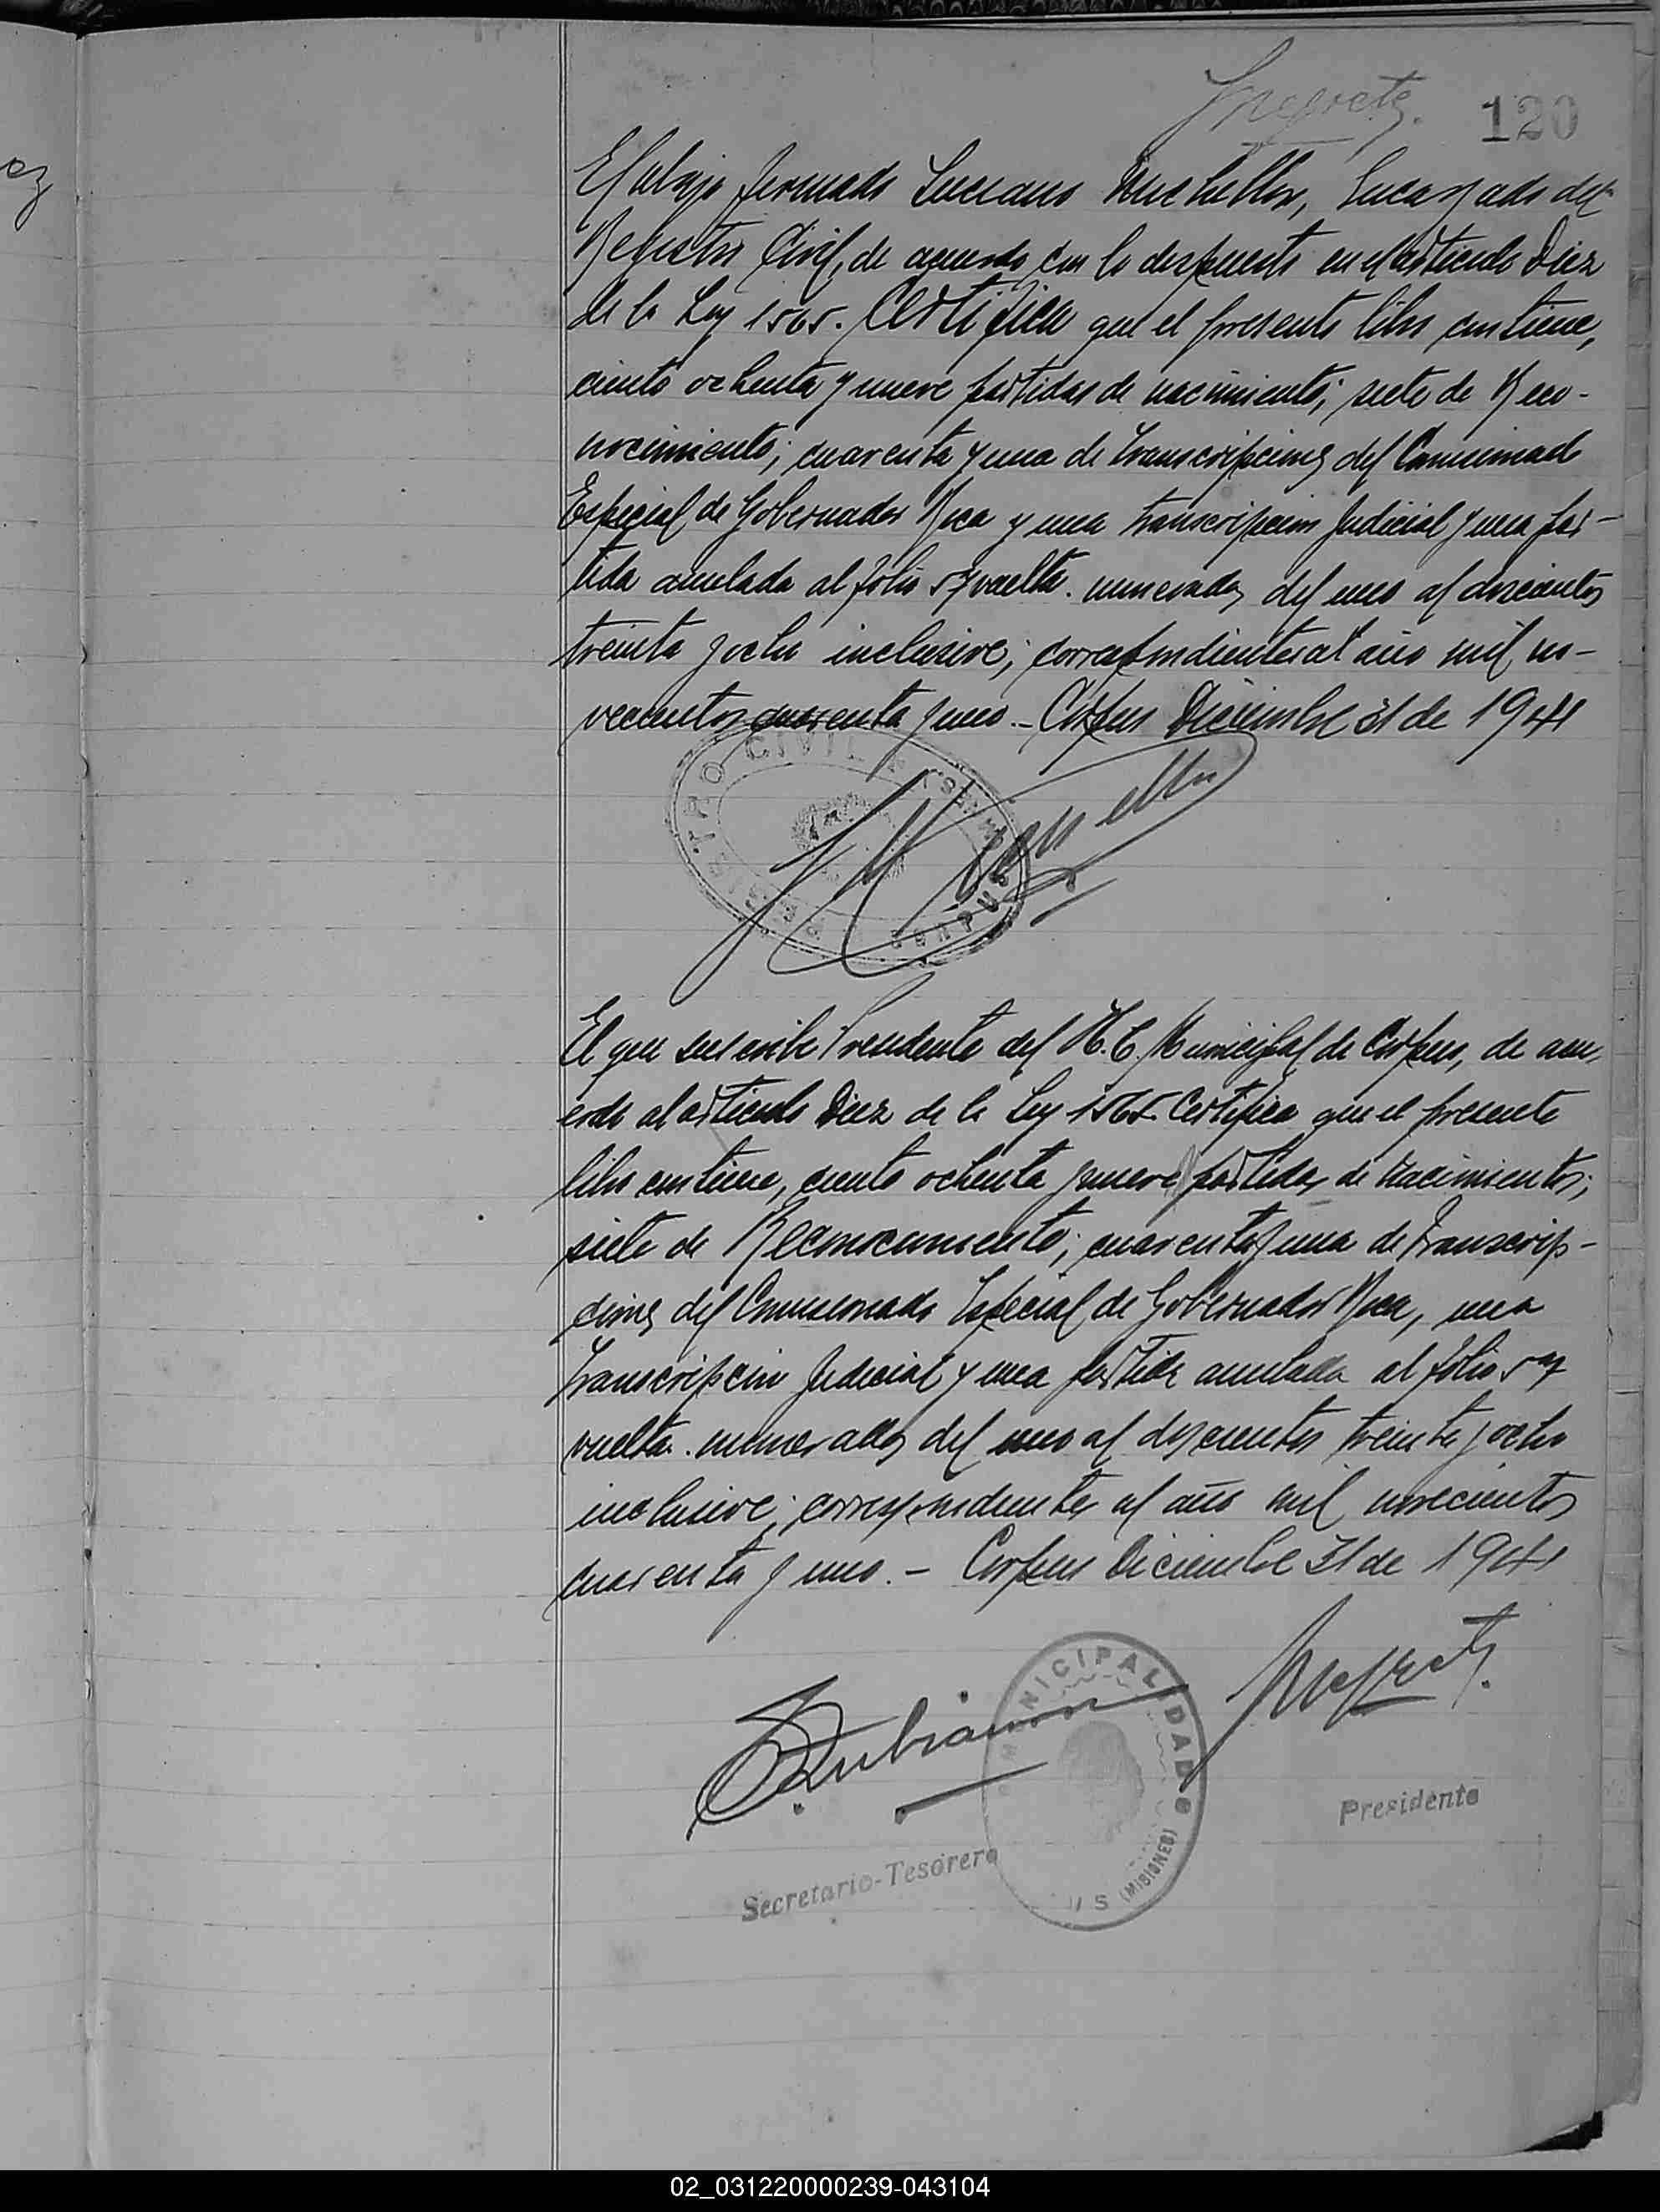 120
El abajo firmado Luciano Encargado del
Registro Civil, de acuerdo con lo dispuesto en el articulo Diez
de la Ley 1565. Certifica que el presente libro contiene,
ciento ochenta y nueve partidas de nacimiento; siete de Reco-
nocimiento; cuarenta y una de transcripciones del Comisionado
Especial de Gobernador Roca y una transcripcion Judicial y una par-
tida anulada al folio 57 vuelta. numeradas del uno al doscientos
treinta y ocho inclusive; correspondientes al año mil no-
vecientos cuarenta y uno. - Corpus Diciembre 31 de 1941
REGISTRO CIVIL
CORPUS
El que suscribe Presidente del H. C. Municipal de Corpus, de acu-
erdo al articulo Diez de la Ley 1565 Certifica que el presente
libro contiene, ciento ochenta y nueve partidas de Nacimientos;
siete de Reconocimiento; cuarenta y una de transcrip-
ciones del Comisionado Especial de Gobernador Roca, una
transcripcion Judicial y una partida anulada al folio 57
vuelta. numeradas del uno al doscientos treinta y ocho
inclusive; correspondientes al año mil novecientos
cuarenta y uno. - Corpus Diciembre 31 de 1941
MUNICIPALIDAD
(MISIONES)
Presidente
Secretario-Tesorero
02_031220000239-043104